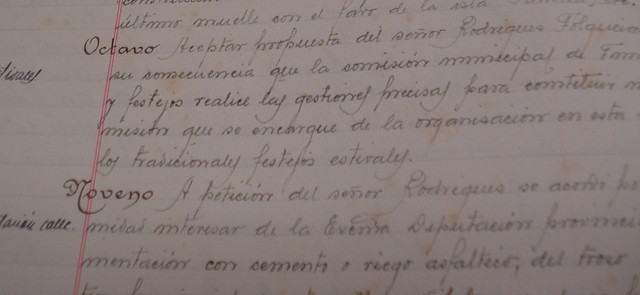 último muelle con el Faro de la isla
Octavo Aceptar propuesta del señor Rodríguez Folgueira
su consecuencia que la comisión municipal de Fom
y festejos realice las gestiones precisas para constituir
misión que se encargue de la organización en esta
los tradicionales festejos estivales.
Noveno A petición del señor Rodríguez se acordó por
midad interesar de la Excma Diputación provinci
calle.
mentación con cemento o riego asfaltico, del trozo